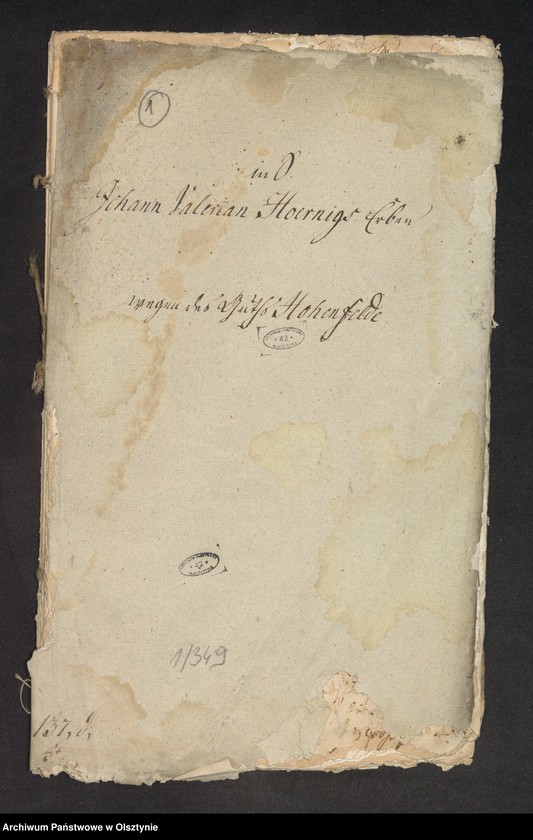 1
in S.
Johann Valerian Hoernigs Erben
wegen des Guths Hohenfelde
1/349
137, d,
Archiwum Państwowe w Olsztynie